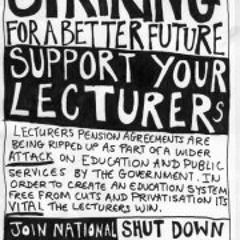 STRIKING
FOR A BETTER FUTURE
SUPPORT YOUR
LECTURERS
LECTURERS PENSION AGREEMENTS ARE
BEING RIPPED UP AS PART OF A WIDER
ATTACK ON EDUCATION AND PUBLIC
SERVICES BY THE GOVERNMENT. IN
ORDER TO CREATE AN EDUCATION SYSTEM
FREE FROM CUTS AND PRIVATISATION ITS
VITAL THE LECTURERS WIN.
JOIN NATIONAL SHUT DOWN